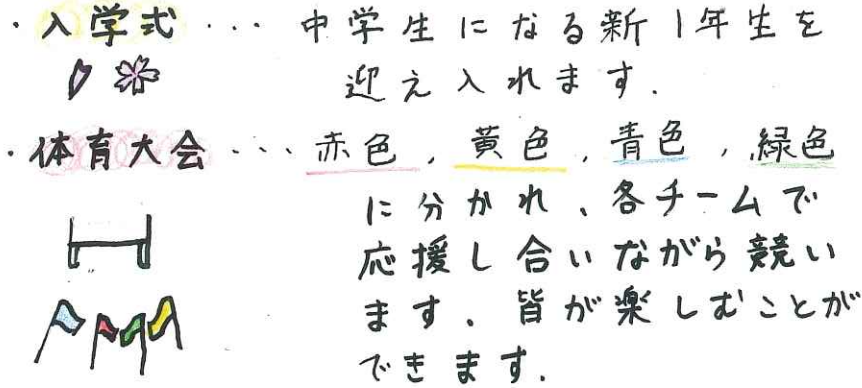 ・入学式… 中学生になる新1年生を
迎え入れます.
・体育大会… 赤色, 黄色, 青色, 緑色
に分かれ、各チームで
応援し合いながら競い
ます. 皆が楽しむことが
できます.